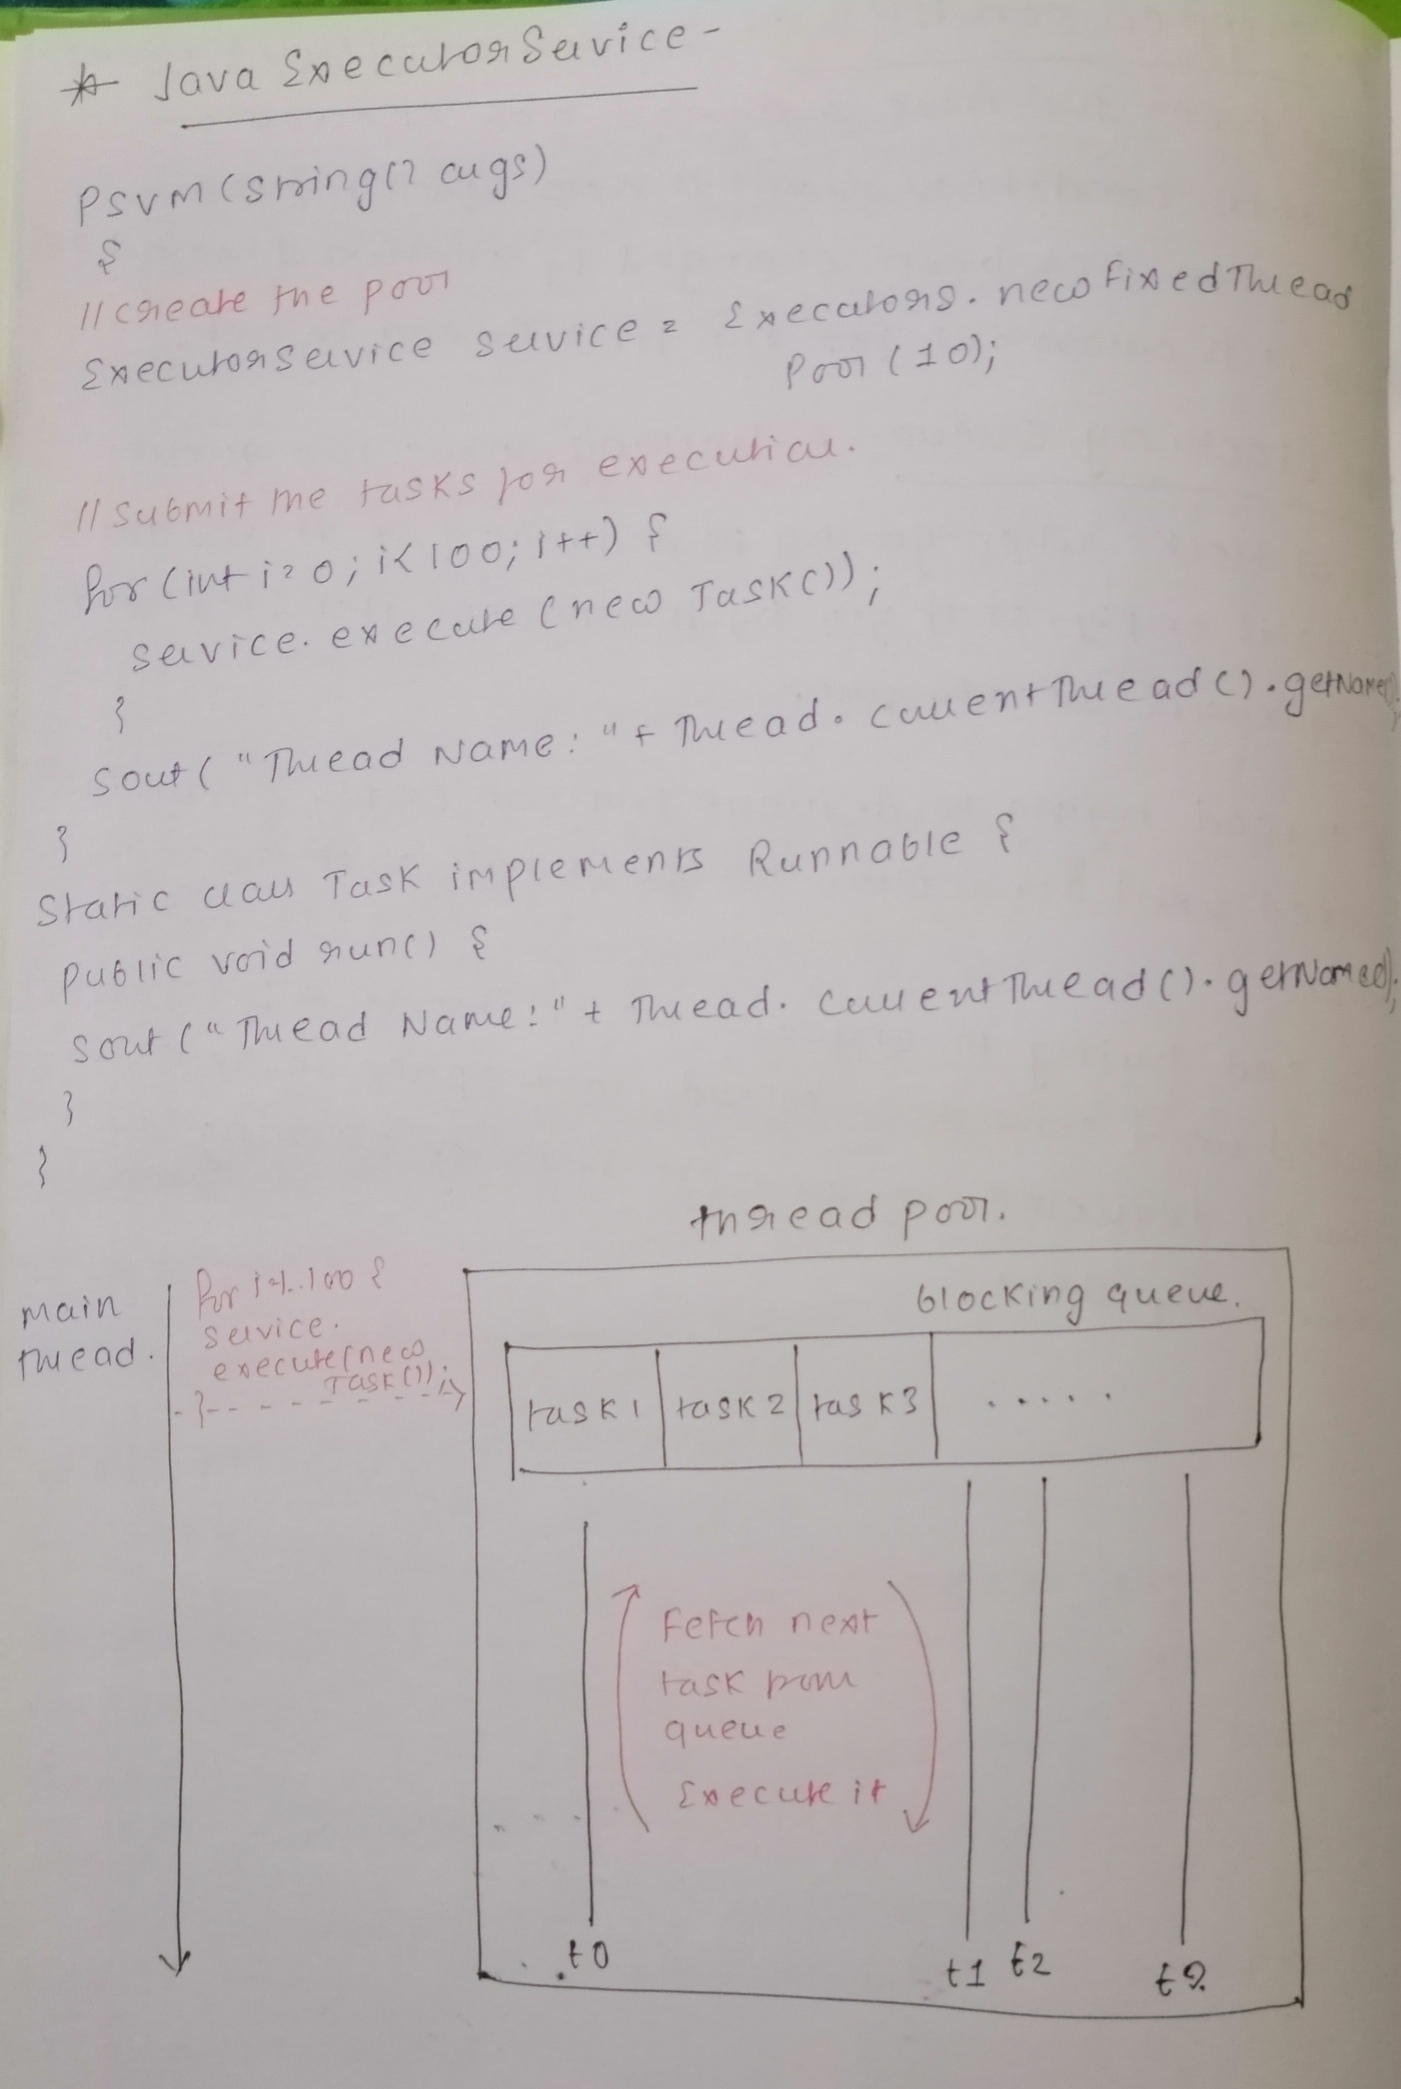 * Java ExecutorService -
PSVM (String[] args)
{
// create the pool
ExecutorService service = Executors.newFixedThread
Pool (10);
// Submit the tasks for execution.
for (int i=0; i<100; i++) {
service.execute (new Task());
}
Sout ("Thread Name: " + Thread.currentThread().getName());
}
Static class Task implements Runnable {
public void run() {
Sout ("Thread Name:" + Thread.currentThread().getName());
}
}
thread pool.
main
thread.
for i=1..100 {
service.
execute(new
Task());
}
blocking queue.
task1 task2 task3 .....
Fetch next
task from
queue
Execute it
t0 t1 t2 t9